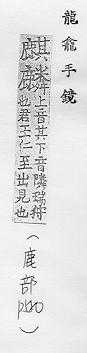 龍龕手鏡
麒麟上音其下音隣瑞狩
也君王仁至出見也
(鹿部